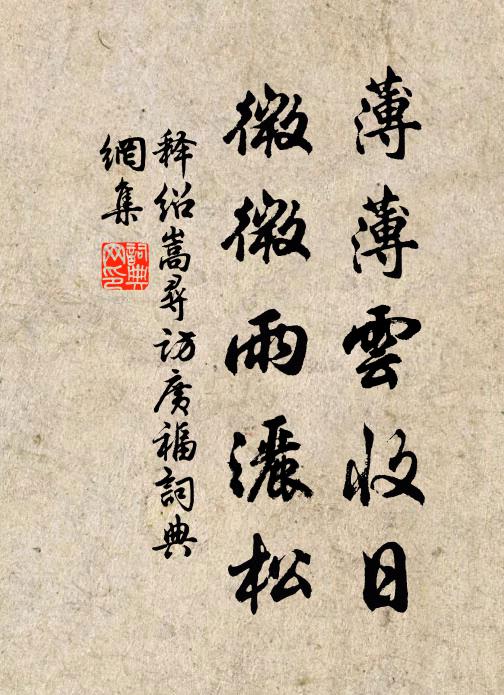 薄薄雲收日
微微雨灑松
释紹嵩尋訪廣福詞典
網集
詞典网印